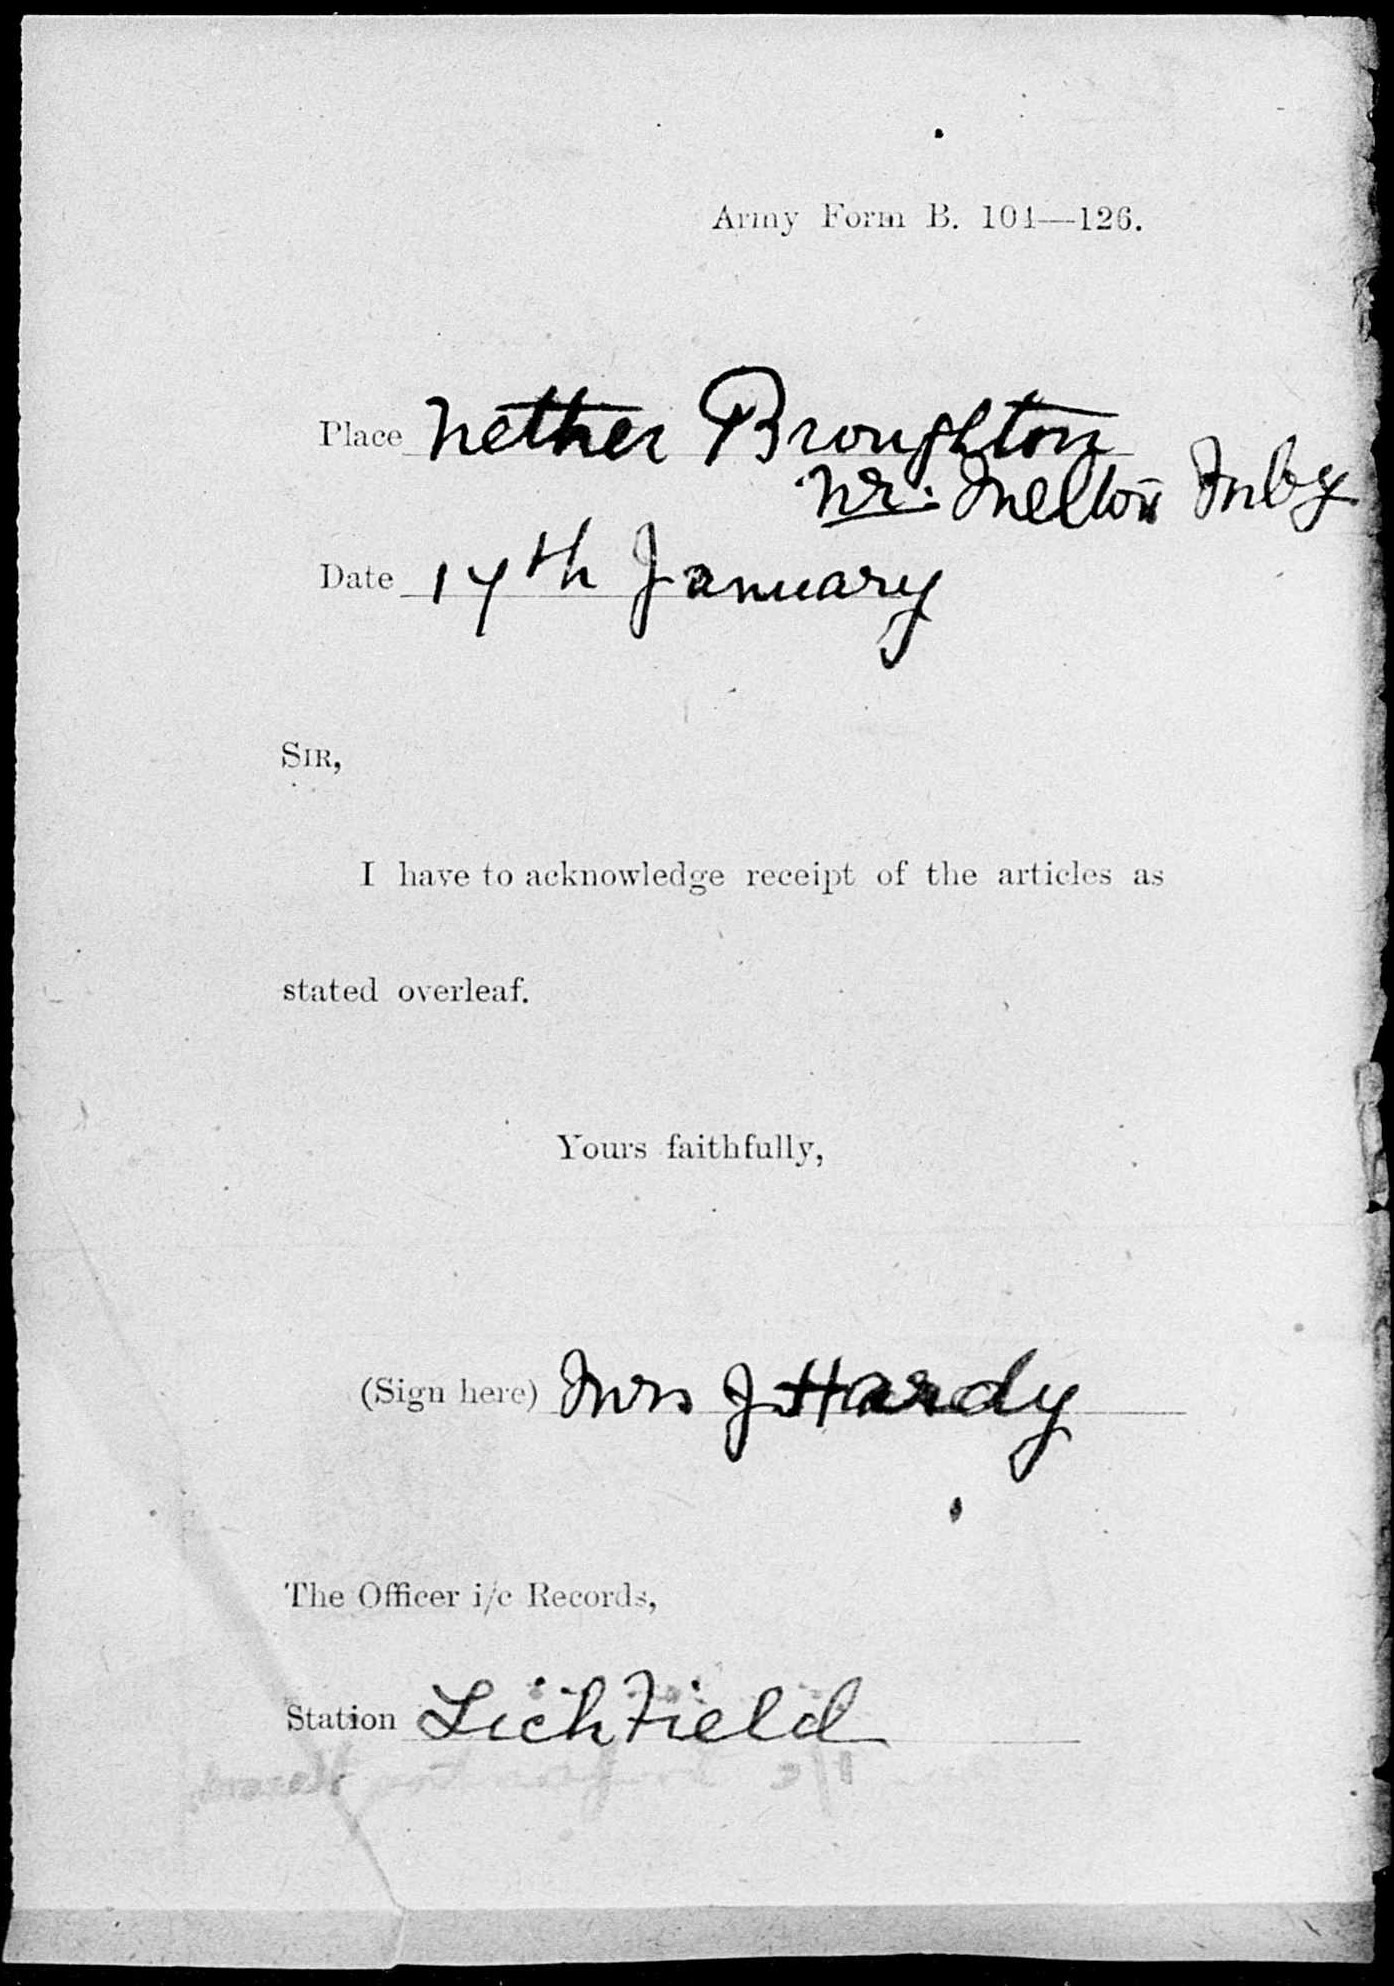 Army Form B. 104—126.
Place Nether Broughton
Nr: Melton Mby
Date 17th January
SIR,
I have to acknowledge receipt of the articles as
stated overleaf.
Yours faithfully,
(Sign here) Mrs J Hardy
The Officer i/c Records,
Station Lichfield